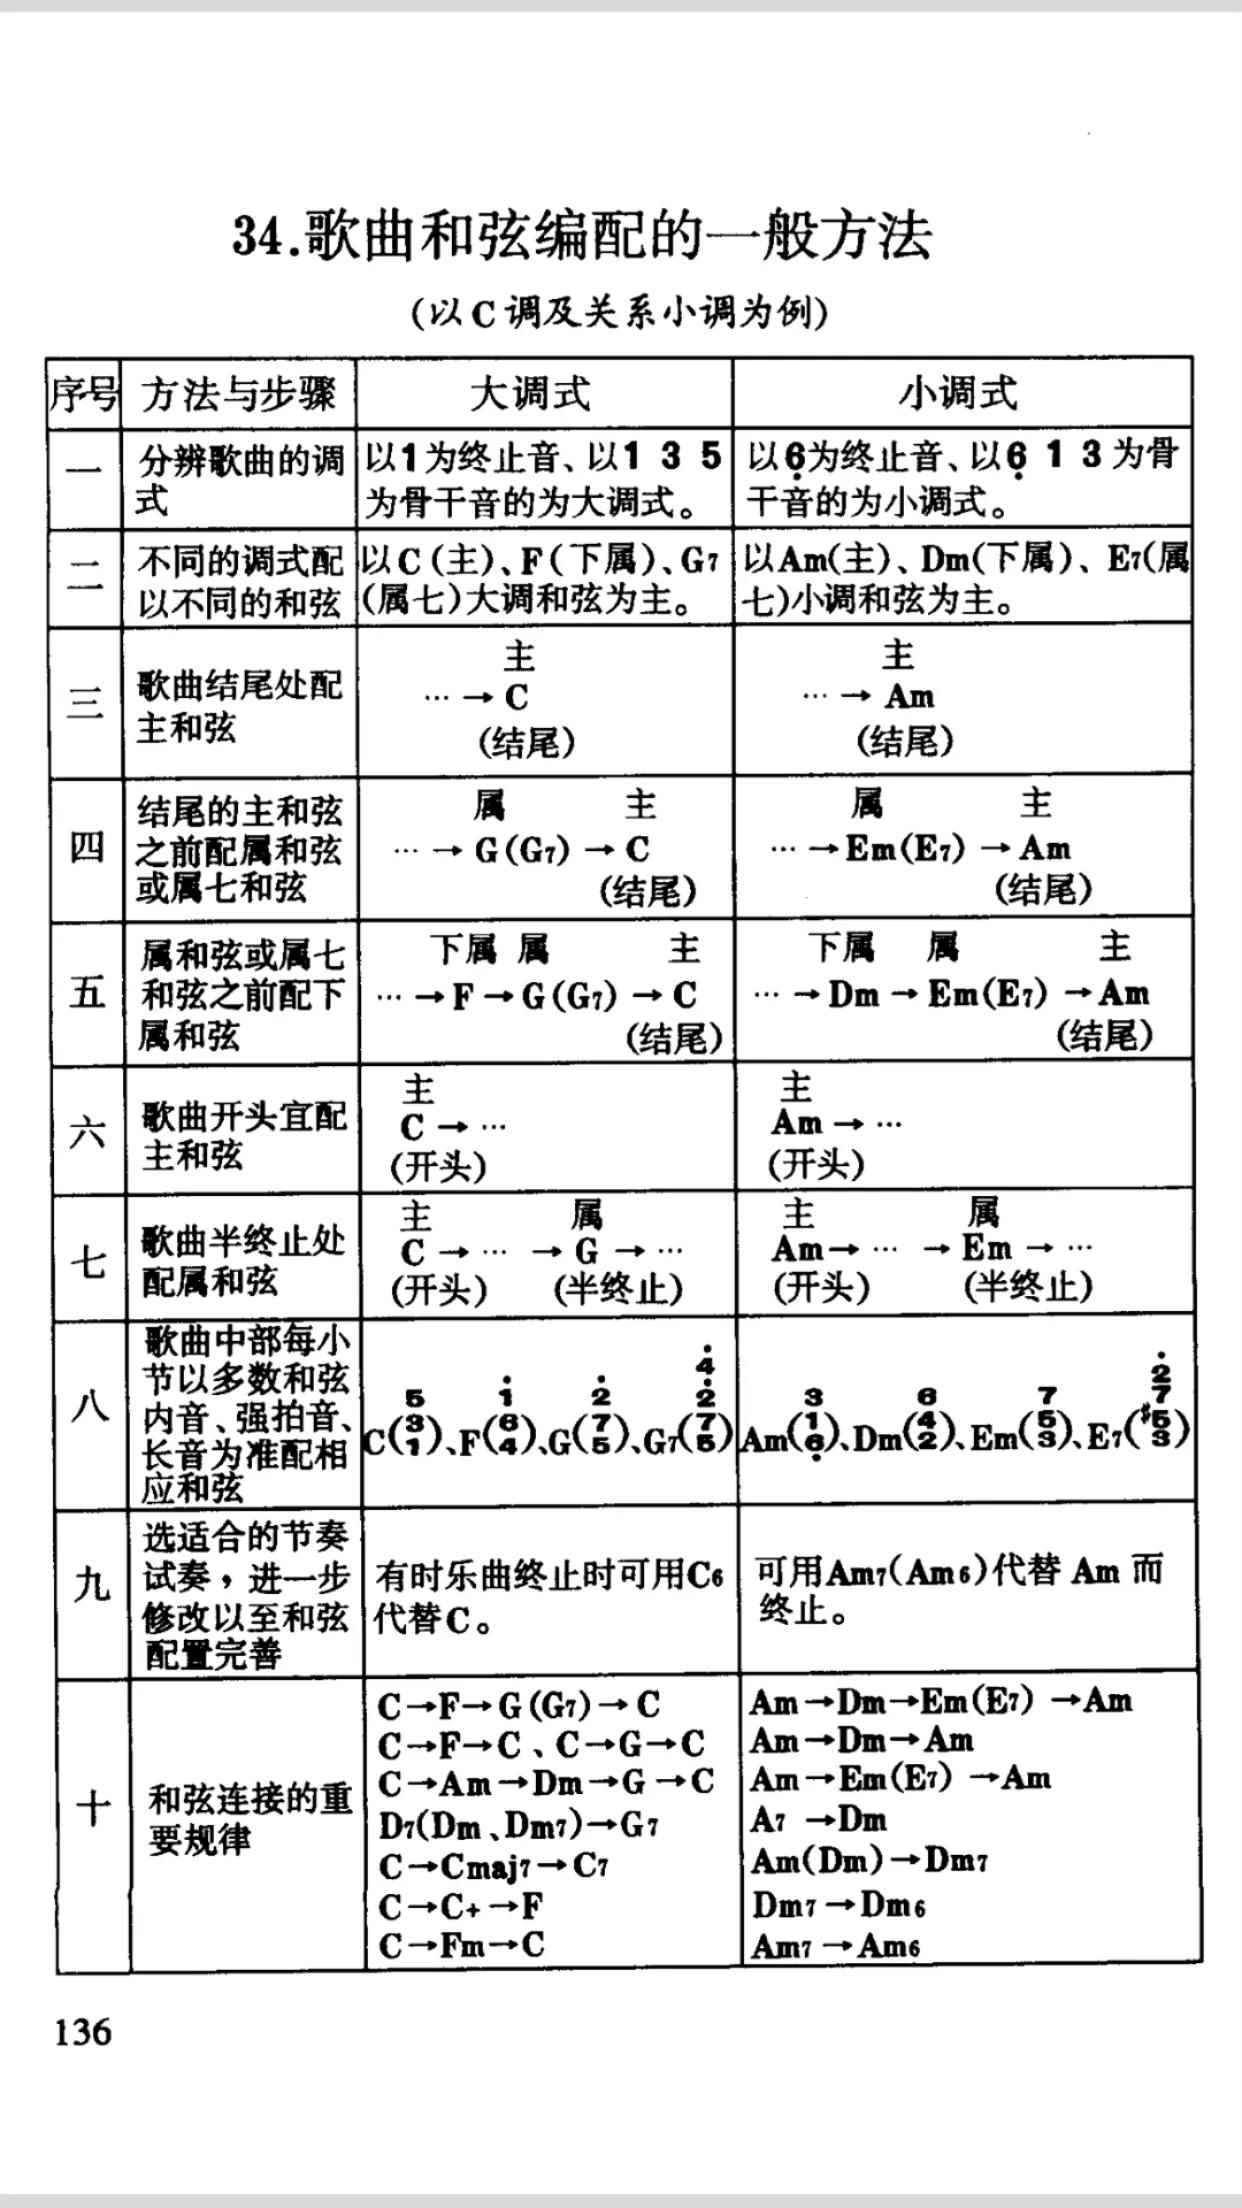 34.歌曲和弦编配的一般方法
(以C调及关系小调为例)
序号 方法与步骤 大调式 小调式
一
分辨歌曲的调
式
以1为终止音、以1 3 5
为骨干音的为大调式。
以6̣为终止音、以6̣ 1 3为骨
干音的为小调式。
二
不同的调式配
以不同的和弦
以C(主)、F(下属)、G7
(属七)大调和弦为主。
以Am(主)、Dm(下属)、E7(属
七)小调和弦为主。
三
歌曲结尾处配
主和弦
主
…→C
(结尾)
主
…→Am
(结尾)
四
结尾的主和弦
之前配属和弦
或属七和弦
属 主
…→G(G7)→C
(结尾)
属 主
…→Em(E7)→Am
(结尾)
五
属和弦或属七
和弦之前配下
属和弦
下属 属 主
…→F→G(G7)→C
(结尾)
下属 属 主
…→Dm→Em(E7)→Am
(结尾)
六
歌曲开头宜配
主和弦
主
C→…
(开头)
主
Am→…
(开头)
七
歌曲半终止处
配属和弦
主 属
C→… →G→…
(开头) (半终止)
主 属
Am→… →Em→…
(开头) (半终止)
八
歌曲中部每小
节以多数和弦
内音、强拍音、
长音为准配相
应和弦
4̇
5 1̇ 2̇ 2̇
3 6 7 7
C( )、F( )、G( )、G7( )
1 4 5 5
2̇
3 6 7 7
1 4 5 #5
Am( )、Dm( )、Em( )、E7( )
6̣ 2 3 3
九
选适合的节奏
试奏，进一步
修改以至和弦
配置完善
有时乐曲终止时可用C6
代替C。
可用Am7(Am6)代替Am而
终止。
十
和弦连接的重
要规律
C→F→G(G7)→C
C→F→C、C→G→C
C→Am→Dm→G→C
D7(Dm、Dm7)→G7
C→Cmaj7→C7
C→C+→F
C→Fm→C
Am→Dm→Em(E7)→Am
Am→Dm→Am
Am→Em(E7)→Am
A7→Dm
Am(Dm)→Dm7
Dm7→Dm6
Am7→Am6
136